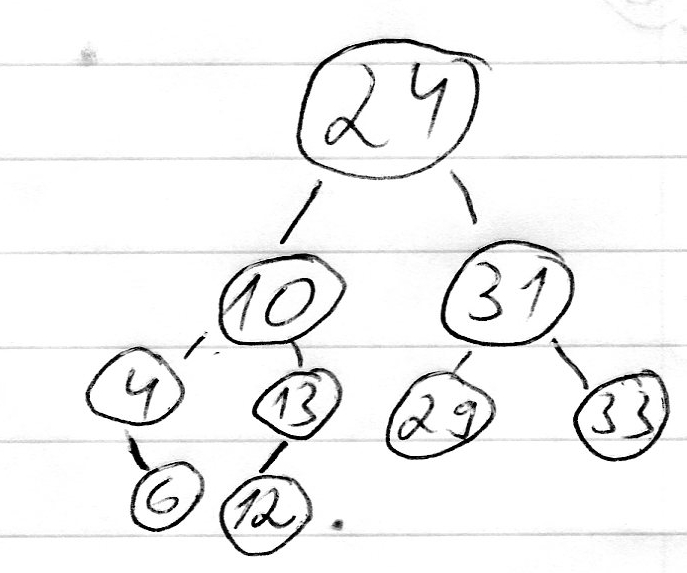 24
10 31
4 13 29 33
6 12